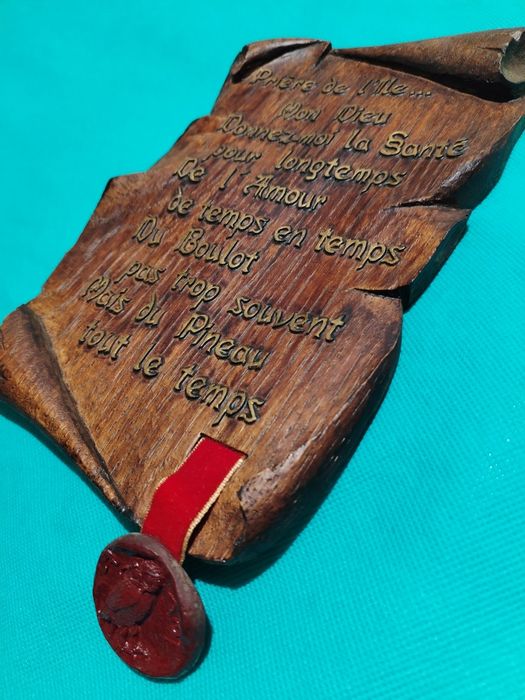 Prière de l'Ile...
Mon Dieu
Donnez-moi la Santé
pour longtemps
De l'Amour
de temps en temps
Du Boulot
pas trop souvent
Mais du Pineau
tout le temps